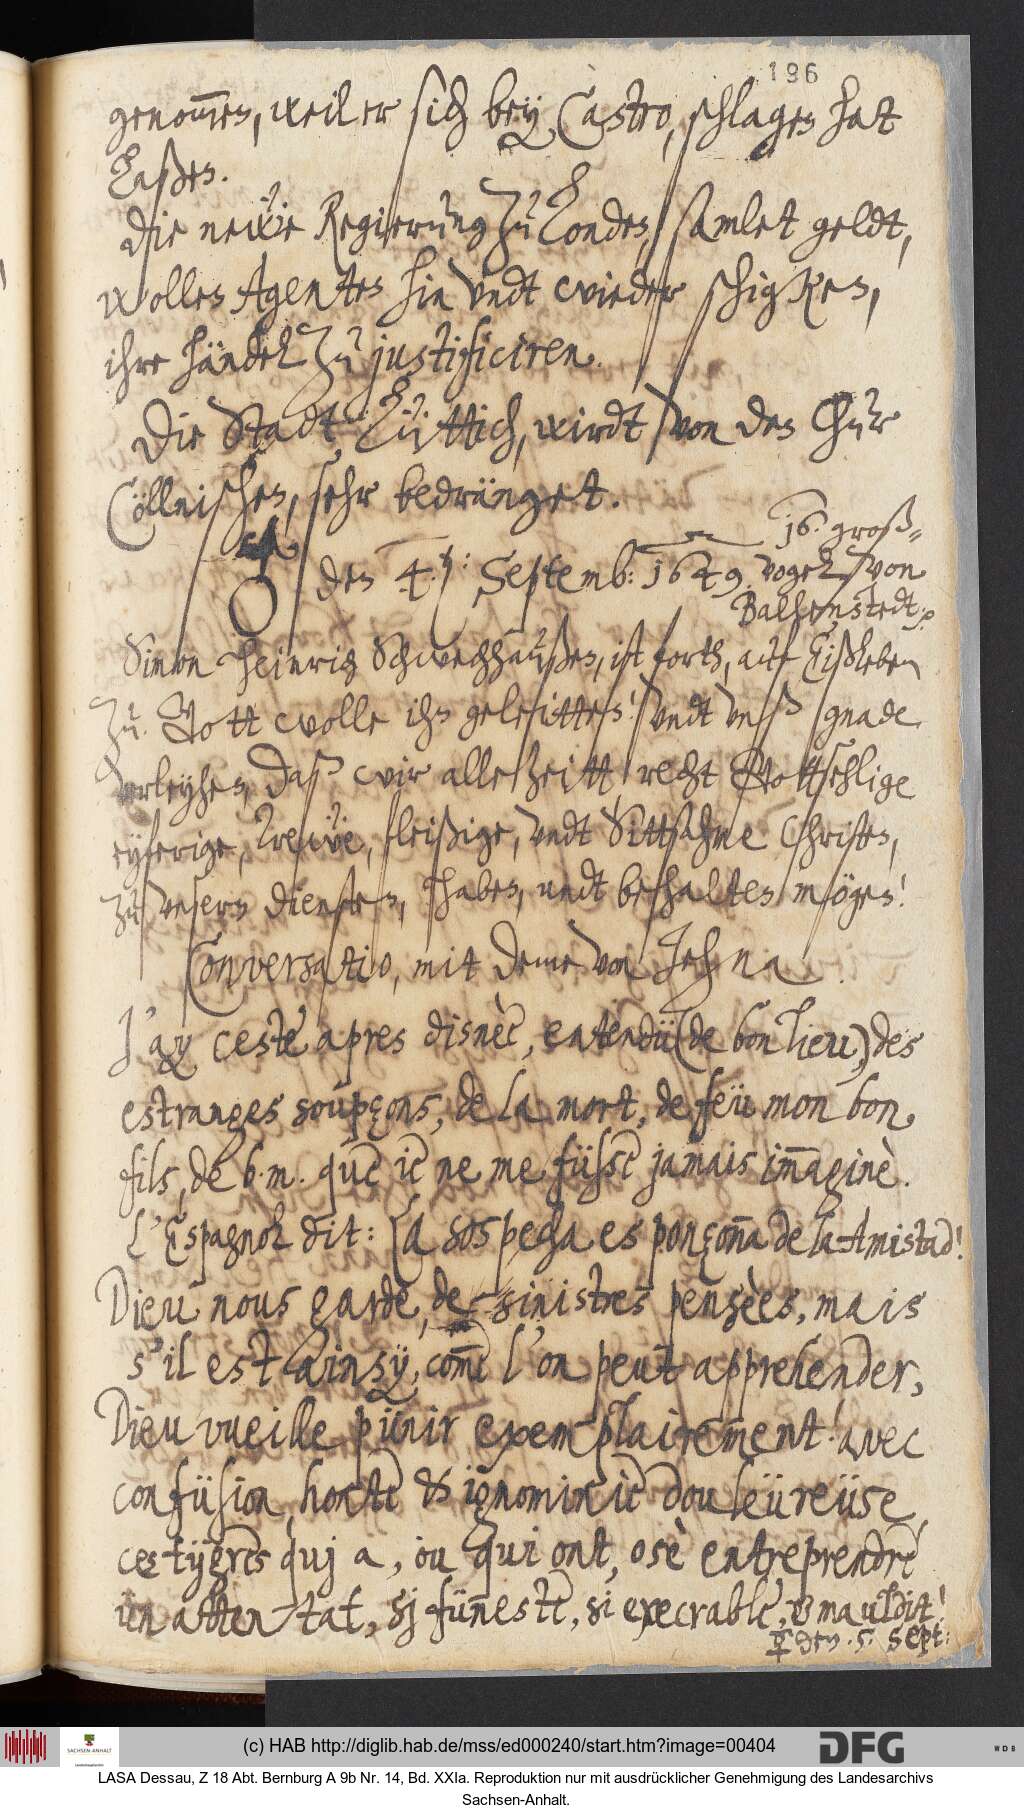 196
genom̅en, weil er sich bey Castro, schlagen hat
Laßen.
Die neẅe Regierung zu Londen, samlet geldt,
wollen Agenten hin undt wieder schigken,
ihre händel zu justificiren.
Die Stadt Lüttich, wirdt von den Chur
Cöllnischen, sehr bedränget.
16. groß-
♂ den 4.t: Septemb: 1649. vogel von
Balhenstedt.
Simon Heinrich Schwechhaußen, ist forth, auf Eißleben
zu. Gott wolle ihn geleitten! undt unß gnade
verleyhen, daß wir allezeitt recht Gottsehlige
eyferige, trewe, fleißige, undt Sittsahme Christen,
zu unsern diensten, haben, undt behalten mögen!
Conversatio, mit deme von Jehna.
J'ay ceste apres disnèe, entendü (de bon lieu,) des
estranges soupçons, de la mort, de feü mon bon
fils, de b. m. que ie ne me füsse jamais im̅aginè.
L'Espagnol dit: La sospecha es ponçon̅a de la Amistad!
Dieu nous garde, de sinistres pensèes, mais
s'il est ainsÿ, com̅e l'on peut apprehender,
Dieu vueille pünir exemplairement! avec
confüsion, honte & ignominie douleüreüse,
ces tÿgres quj a, ou qui ont, osè entreprendre
ün atten-tat, sj füneste, si execrable, & mauldit!
☿ den. 5. Sept:
(c) HAB http://diglib.hab.de/mss/ed000240/start.htm?image=00404
SACHSEN-ANHALT
DFG
WDB
LASA Dessau, Z 18 Abt. Bernburg A 9b Nr. 14, Bd. XXIa. Reproduktion nur mit ausdrücklicher Genehmigung des Landesarchivs
Sachsen-Anhalt.